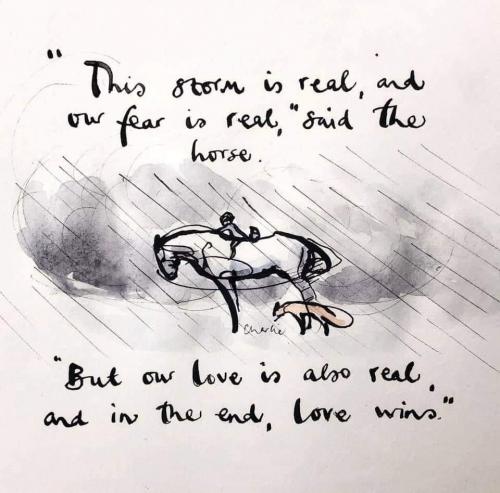 "This storm is real, and
our fear is real," said the
horse.
Charlie
"But our love is also real,
and in the end, love wins."